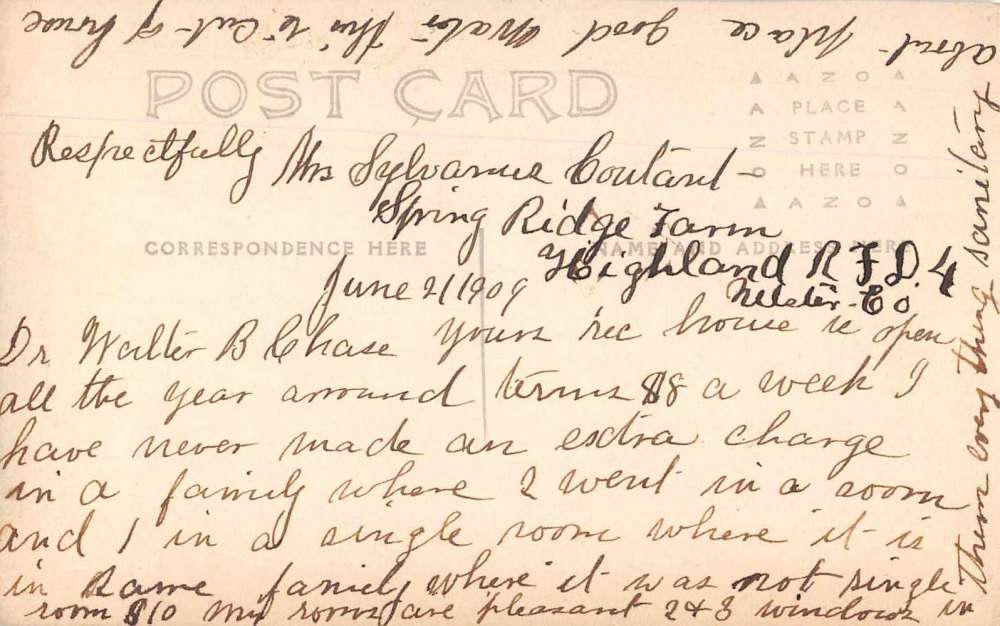 POST CARD
AZO
PLACE
STAMP
HERE
AZO
CORRESPONDENCE HERE
NAME AND ADDRESS HERE
June 21 1909
Dr Walter B Chase yours rec house is open
all the year around terms $8 a week I
have never made an extra charge
in a family where 2 went in a room
and 1 in a single room where it is
in same family where it was not single
room $10 my rooms are pleasant 2 & 3 windows in
them every thing sanitary
about place good water this is cut of house
Respectfully Mrs Sylvanus Coutant
Spring Ridge Farm
Highland R F D. 4
Ulster Co